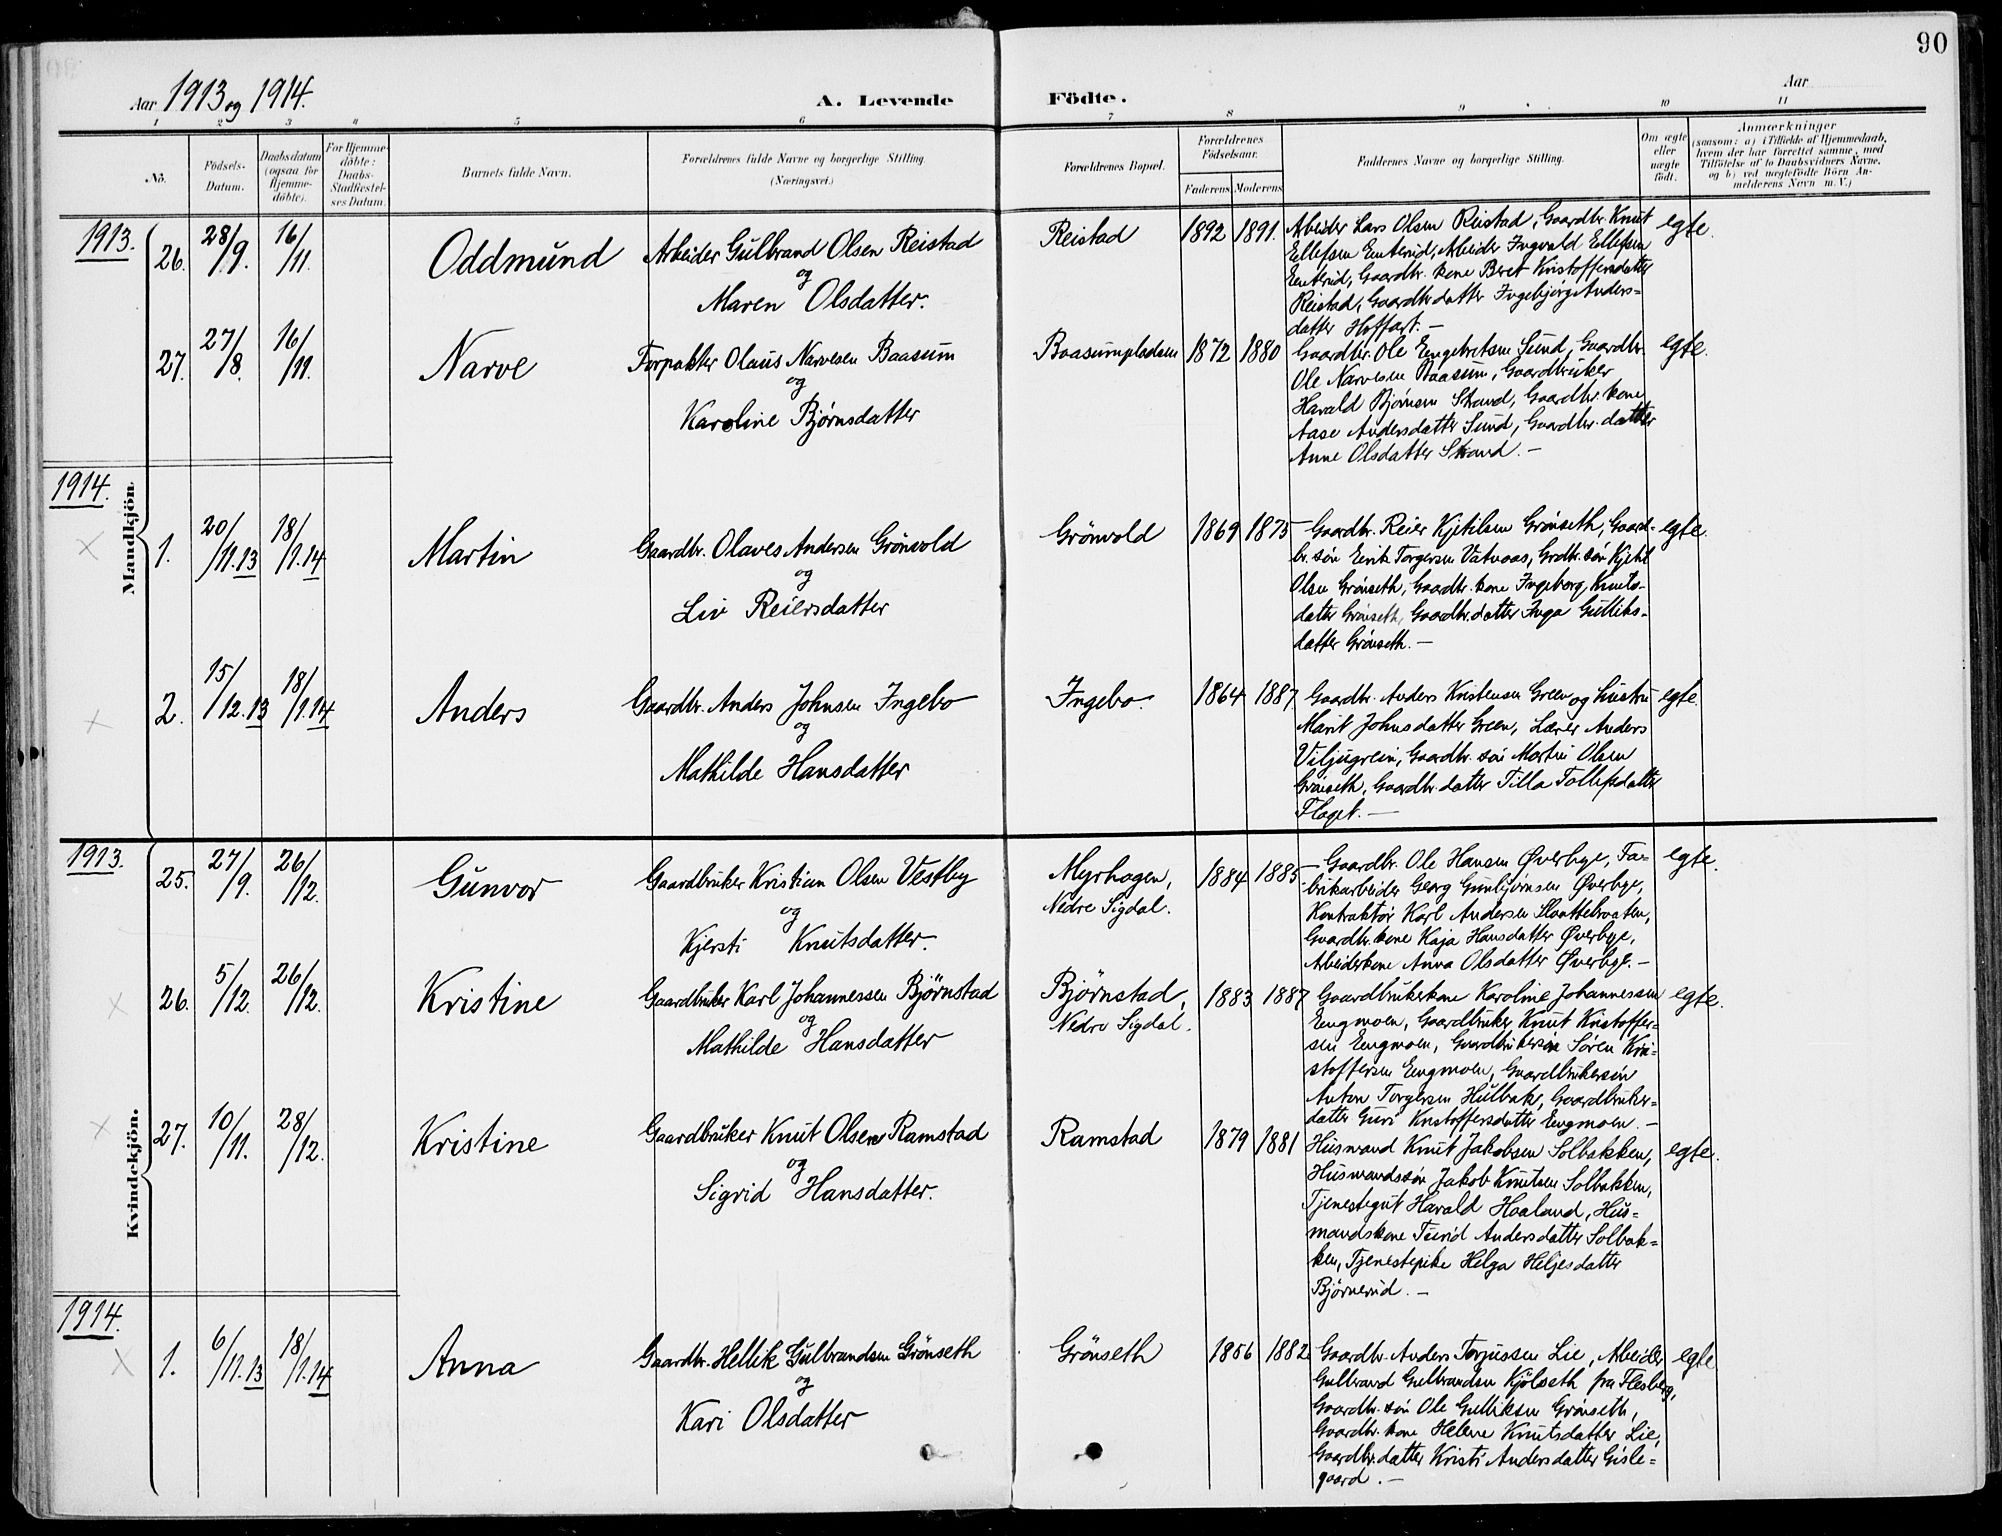 90
Aar 1913 og 1914.
A. Levende Födte.
Aar
1 2 3 4 5 6 7 8 9 10 11
No.
Födsels-
Datum.
Daabsdatum
(ogsaa for
Hjemme-
döbte).
For Hjemme-
döbte:
Daabs-
Stadfæstel-
ses Datum.
Barnets fulde Navn.
Forældrenes fulde Navne og borgerlige Stilling.
(Næringsvei.)
Forældrenes Bopæl.
Forældrenes
Födselsaar.
Faderens Moderens
Faddernes Navne og borgerlige Stilling.
Om ægte
eller
uægte
födt.
Anmærkninger
(saasom: a) i Tilfælde af Hjemmedaab,
hvem der har forrettet samme, med
Tilföielse af to Daabsvidners Navne,
og b) ved uægtefödte Börn An-
melderens Navn m. V.)
Mandkjön.
1913.
26. 28/9. 16/11. Oddmund
Arbeider Gulbrand Olsen Reistad
og
Maren Olsdatter.
Reistad 1892 1891.
Arbeider Lars Olsen Reistad, Gaardbr. Knut
Ellefsen Enterud, Arbeider Ingvald Ellefsen
Enterud, Gaardbr. kone Beret Kristoffersdatter
Reistad, Gaardbr. datter Ingebjørg Anders-
datter Hoffart. –
egte.
27. 27/8. 16/11. Narve
Forpakter Olaus Narvesen Baasum
og
Karoline Bjørnsdatter
Baasumpladsen 1872 1880
Gaardbr. Ole Engebretsen Sund, Gaardbr.
Ole Narvesen Baasum, Gaardbruker
Harald Bjørnsen Strand, Gaardbr. kone
Aase Andersdatter Sund, Gaardbr. datter
Anne Olsdatter Strand. –
egte.
1914.
1. 20/11.13 18/1.14 Martin
Gaardbr. Olaves Andersen Grönvold
og
Liv Reiersdatter
Grönvold 1869 1875
Gaardbr. Reier Kjetilsen Grönseth, Gaard-
br. sön Eirik Torgersen Vatnaas, Grdbr. sön Kjetil
Olsen Grönseth, Gaardbr. kone Ingeborg Knuts-
datter Grönseth, Gaardbr. datter Inga Gulliks-
datter Grönseth. –
egte.
2. 15/12.13 18/1.14 Anders
Gaardbr. Anders Johnsen Ingebo
og
Mathilde Hansdatter
Ingebo. 1864 1887
Gaardbr. Anders Kristensen Green og hustru
Marit Johnsdatter Green, Lærer Anders
Viljugrein, Gaardbr. sön Martin Olsen
Grönseth, Gaardbr. datter Tilla Tollefsdatter
Flaget. –
egte.
Kvindekjön.
1913.
25. 27/9. 26/12. Gunvor
Gaardbruker Kristian Olsen Vestby
og
Kjersti Knutsdatter.
Myrhagen,
Nedre Sigdal.
1884 1885
Gaardbr. Ole Hansen Øverbye, Fa-
brikarbeider Georg Gunbjørnsen Øverbye,
Kontraktör Karl Andersen Slaattebraaten,
Gaardbr. kone Kaja Hansdatter Øverbye,
Arbeiderkone Anna Olsdatter Øverbye. –
egte.
26. 5/12. 26/12. Kristine
Gaardbruker Karl Johannessen Björnstad
og
Mathilde Hansdatter
Björnstad,
Nedre Sigdal.
1883 1887
Gaardbrukerkone Karoline Johannessen
Engmoen, Gaardbruker Knut Kristoffer-
sen Engmoen, Gaardbrukersön Sören Kri-
stoffersen Engmoen, Gaardbrukersön
Anton Torgersen Hulbak, Gaardbruker-
datter Guri Kristoffersdatter Engmoen. –
egte.
27. 10/11. 28/12. Kristine
Gaardbruker Knut Olsen Ramstad
og
Sigrid Hansdatter.
Ramstad 1879 1881
Husmand Knut Jakobsen Solbakken,
Husmandssön Jakob Knutsen Solbakken,
Tjenestegut Harald Haaland, Hus-
mandskone Turid Andersdatter Solbak-
ken, Tjenestepike Helga Heljesdatter
Björnerud. –
egte.
1914.
1. 6/11.13 18/1.14 Anna
Gaardbr. Hellik Gulbrandsen Grönseth
og
Kari Olsdatter
Grönseth 1856 1882
Gaardbr. Anders Torjussen Lie, Arbeider
Gulbrand Gulbrandsen Kjölseth fra Flesberg,
Gaardbr. sön Ole Gulliksen Grönseth,
Gaardbr. kone Helene Knutsdatter Lie,
Gaardbr. datter Kristi Andersdatter Gisle-
gaard. –
egte